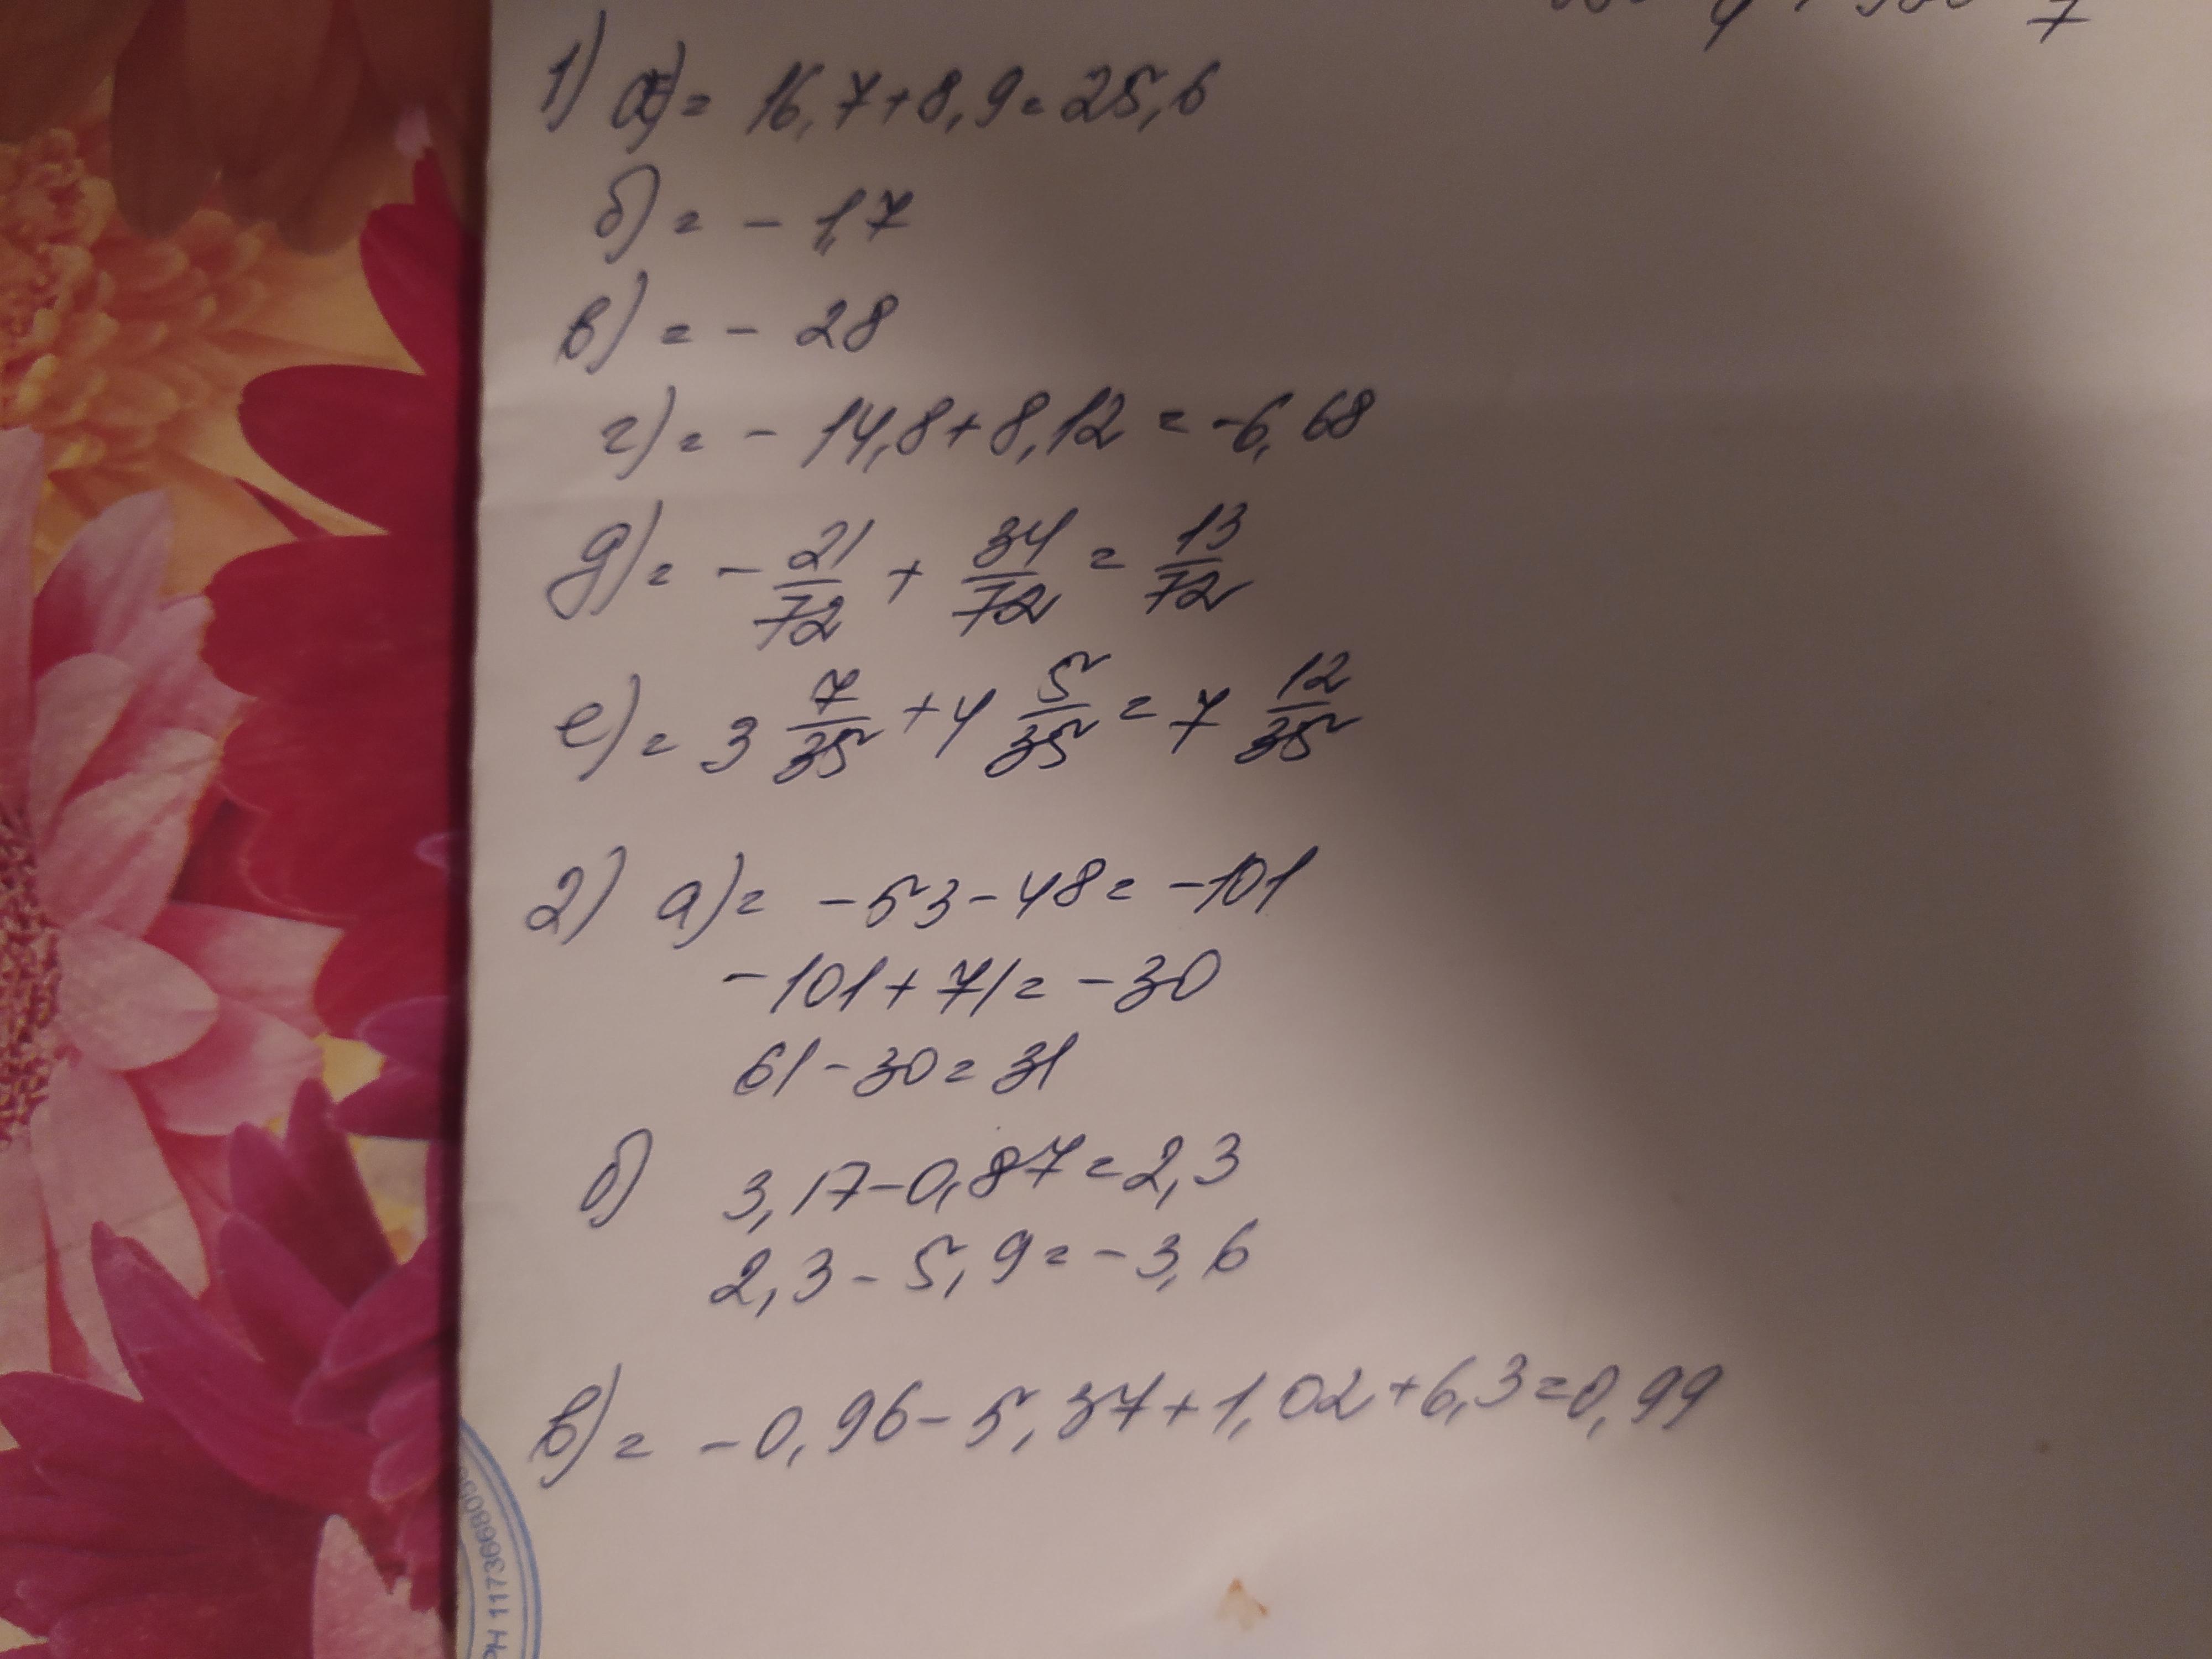 1) а) = 16,7+8,9=25,6
б) = - 1,7
в) = - 28
г) = - 14,8+8,12 = -6,68
д) = - 21/72 + 34/72 = 13/72
е) = 3 7/35 + 4 5/35 = 7 12/35
2) а) = -53-48= -101
-101+71= -30
61-30=31
б) 3,17-0,87=2,3
2,3-5,9=-3,6
в) = -0,96-5,37+1,02+6,3=0,99
Н 11173668